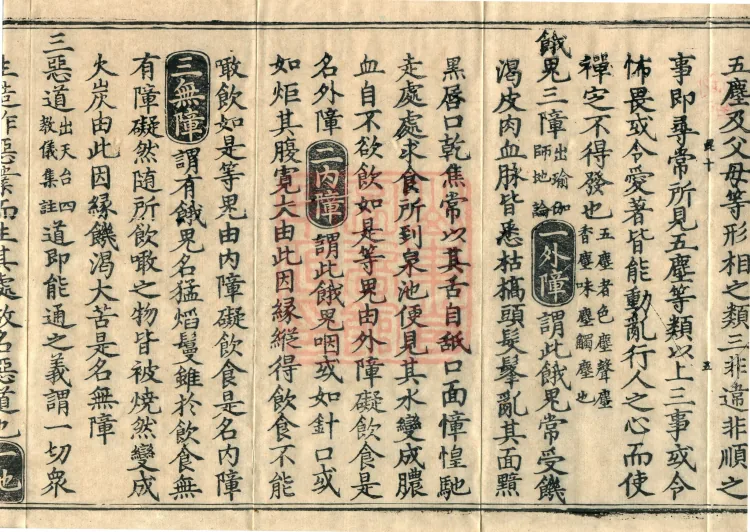 五塵及父母等形相之類三非違非順之
事即尋常所見五塵等類以上三事或令
怖畏或令愛著皆能動亂行人之心而使
禪定不得發也五塵者色塵聲塵香塵味塵觸塵也
餓鬼三障出瑜伽師地論一外障謂此餓鬼常受饑
渴皮肉血脉皆悉枯槁頭髮髼亂其面黯
黑唇口乾焦常以其舌自舐口面慞惶馳
走處處求食所到泉池便見其水變成膿
血自不欲飲如是等鬼由外障礙飲食是
名外障二內障謂此餓鬼咽或如針口或
如炬其腹寬大由此因緣縱得飲食不能
噉飲如是等鬼由內障礙飲食是名內障
三無障謂有餓鬼名猛焰鬘雖於飲食無
有障礙然隨所飲噉之物皆被燒然變成
火炭由此因緣饑渴大苦是名無障
三惡道出天台四教儀集註道即能通之義謂一切眾
生造作惡業而生其處故名惡道也一地